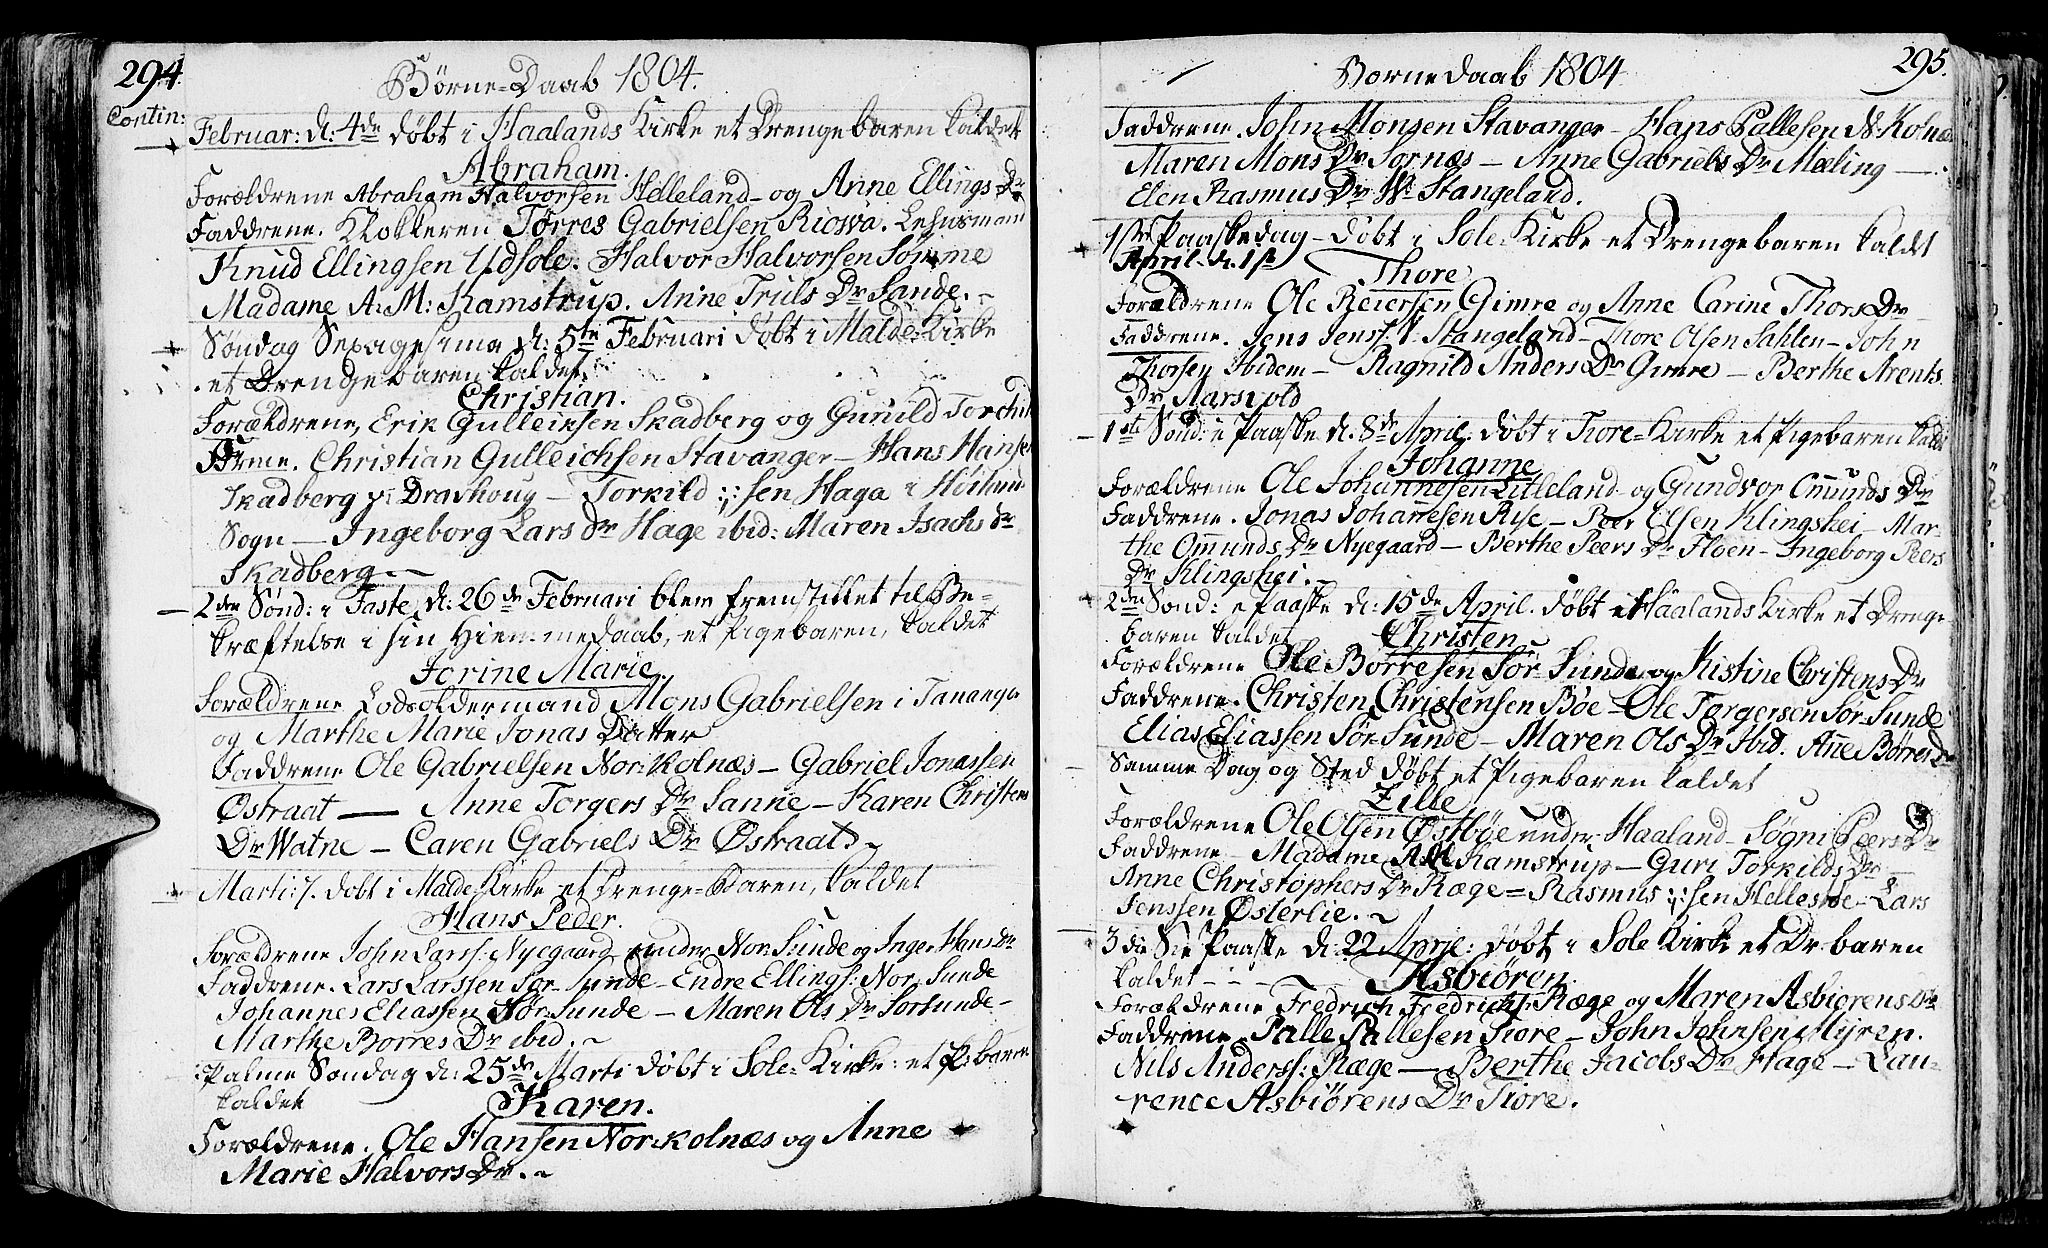 294.
Børne-Daab 1804.
Contin:
Februar: d: 4de døbt i Haalands Kirke et Drengebaren kaldet
Abraham.
Forældrene Abraham Halvorsen Helleland og Anne Ellings Dr
Faddrene. Klokkeren Tørres Gabrielsen Risva. Lehnsmand
Knud Ellingsen Udsole. Halvor Halvorsen Sømme
Madame A. M: Kamstrup. Anne Truls Dr Sande. -
Søndag Sexagesima d: 5te Februari døbt i Malde-Kirke
et Drengebaren kaldet
Christian.
Forældrene, Erik Gulleiksen Skadberg og Gunild Torchils
Dr
Faddrene. Christian Gulleichsen Stavanger - Hans Hansen
Skadberg Dravhoug - Torkild :;: sen Haga i Høilands
Sogn - Ingeborg Lars Dr Hage ibid: Maren Isachs Dr
Skadberg -
2den Sønd: i Faste, d: 26de Februari blev fremstillet til Be-
kræftelse i sin Hiemmedaab, et Pigebaren, kaldet
Jorine Marie
Forældrene Lodsoldermand Mons Gabrielsen i Tananger
og Marthe Marie Jonas Datter
Faddrene Ole Gabrielsen Nor:Kolnæs - Gabriel Jonassen
Østraat - Anne Torgers Dr Sanne - Karen Christens
Dr Watne - Caren Gabriels Dr Østraat -
Marti: 7. døbt i Malde Kirke et Drenge-Baren, kaldet
Hans Peder.
Forældrene John Larss: Nyegaard under Nor: Sunde og Inger Hans Dr
Faddrene. Lars Larssen Sør-Sunde - Endre Ellings: Nor: Sunde
Johannes Eliassen Sør Sunde - Maren Ols Dr Sørsunde -
Marthe Børres Dr ibid. -
Palme Søndag d: 25de Marti døbt i Sole-Kirke: et P:baren
kaldet
Karen.
Forældrene. Ole Hansen Nor:Kolnæs og Anne
Marie Halvors Dr. -
295.
Børne daab 1804
Faddrene. John Monsen Stavanger - Hans Pallesen N: Kolnæs
Maren Mons Dr Sørnæs - Anne Gabriels Dr Mæling -
Elen Rasmus Dr N: Stangeland.
1ste Paaskedag - døbt i Sole-Kirke et Drengebaren kaldt
April. d. 1ste
Thore
Forældrene Ole Reiersen Gimre og Anne Carine Thors Dr
Faddrene. Jens Jenss: N. Stangeland - Thore Olsen Sahlen - John
Thorsen Ibidem - Ragnild Anders Dr Gimre - Berthe Arents
Dr Aarsvold
1ste Sønd: e Paaske d. 8de April. døbt i Tiore-Kirke et Pigebaren kaldt
Johanne
Forældrene Ole Johannesen Litleland og Gundvor Omunds Dr
Faddrene. Jonas Johannesen Rise - Peer Elsen Klingshei - Mar-
the Omunds Dr Nyegaard - Berthe Peers Dr Floen - Ingeborg Peers
Dr Klingshei. -
2den Sønd: e Paaske d: 15de April. døbt i Haalands Kirke et Drenge-
baren kaldet
Christen
Forældrene Ole Børresen Sør-Sunde og Kistine Christens Dr
Faddrene. Christen Christensen Bøe - Ole Torgersen Sør-Sunde
Elias Eliassen Sør-Sunde - Maren Ols Dr Ibid. Anne Børres Dr
Samme Dag og Sted døbt et Pigebaren kaldet
Zille
Forældrene Ole Olsen Østbøe under Haaland - Søgni Peers Dr
Faddrene - Madame A.M. Kamstrup - Guri Torkilds Dr -
Anne Christophers Dr Ræge = Rasmus :;: sen Hellestøe - Lars
Jenssen Østerlie. -
3die S: e Paaske d: 22 April: døbt i Sole Kirke et Dr. baren
kaldet - - -
Asbiøren
Forældrene Fredrich Fredrichs: Ræge og Maren Asbiørens Dr
Faddrene. Palle Pallesen Tiore - John Johnsen Myren.
Nils Anderss: Ræge - Berthe Jacobs Dr Hage - Lau-
rence Asbiørens Dr Tiore.